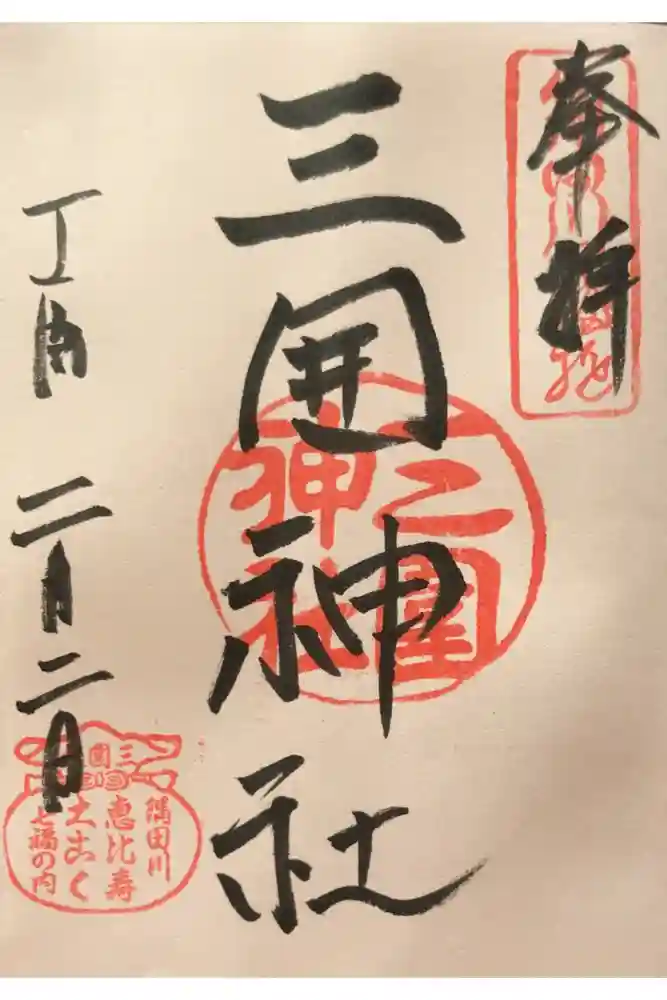 奉拝
三囲神社
丁酉 二月二日
三圍
神社
三圍
隅田川
恵比寿
大こく
七福の内